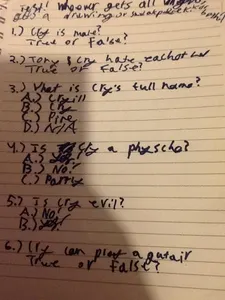 test! whoever gets all
gets a drawing or
1.) Cry is male?
True or False?
2.) Tony & Cry hate eachother
True or False?
3.) What is Cry's full name?
A.) Cryill
B.) Cry
C.) Pire
D.) N/A
4.) Is Cry a physcho?
A.)
B.) No!
C.) Partly
5.) Is Cry evil?
A.) No!
B.)
6.) Cry can play a gutair
True or False?